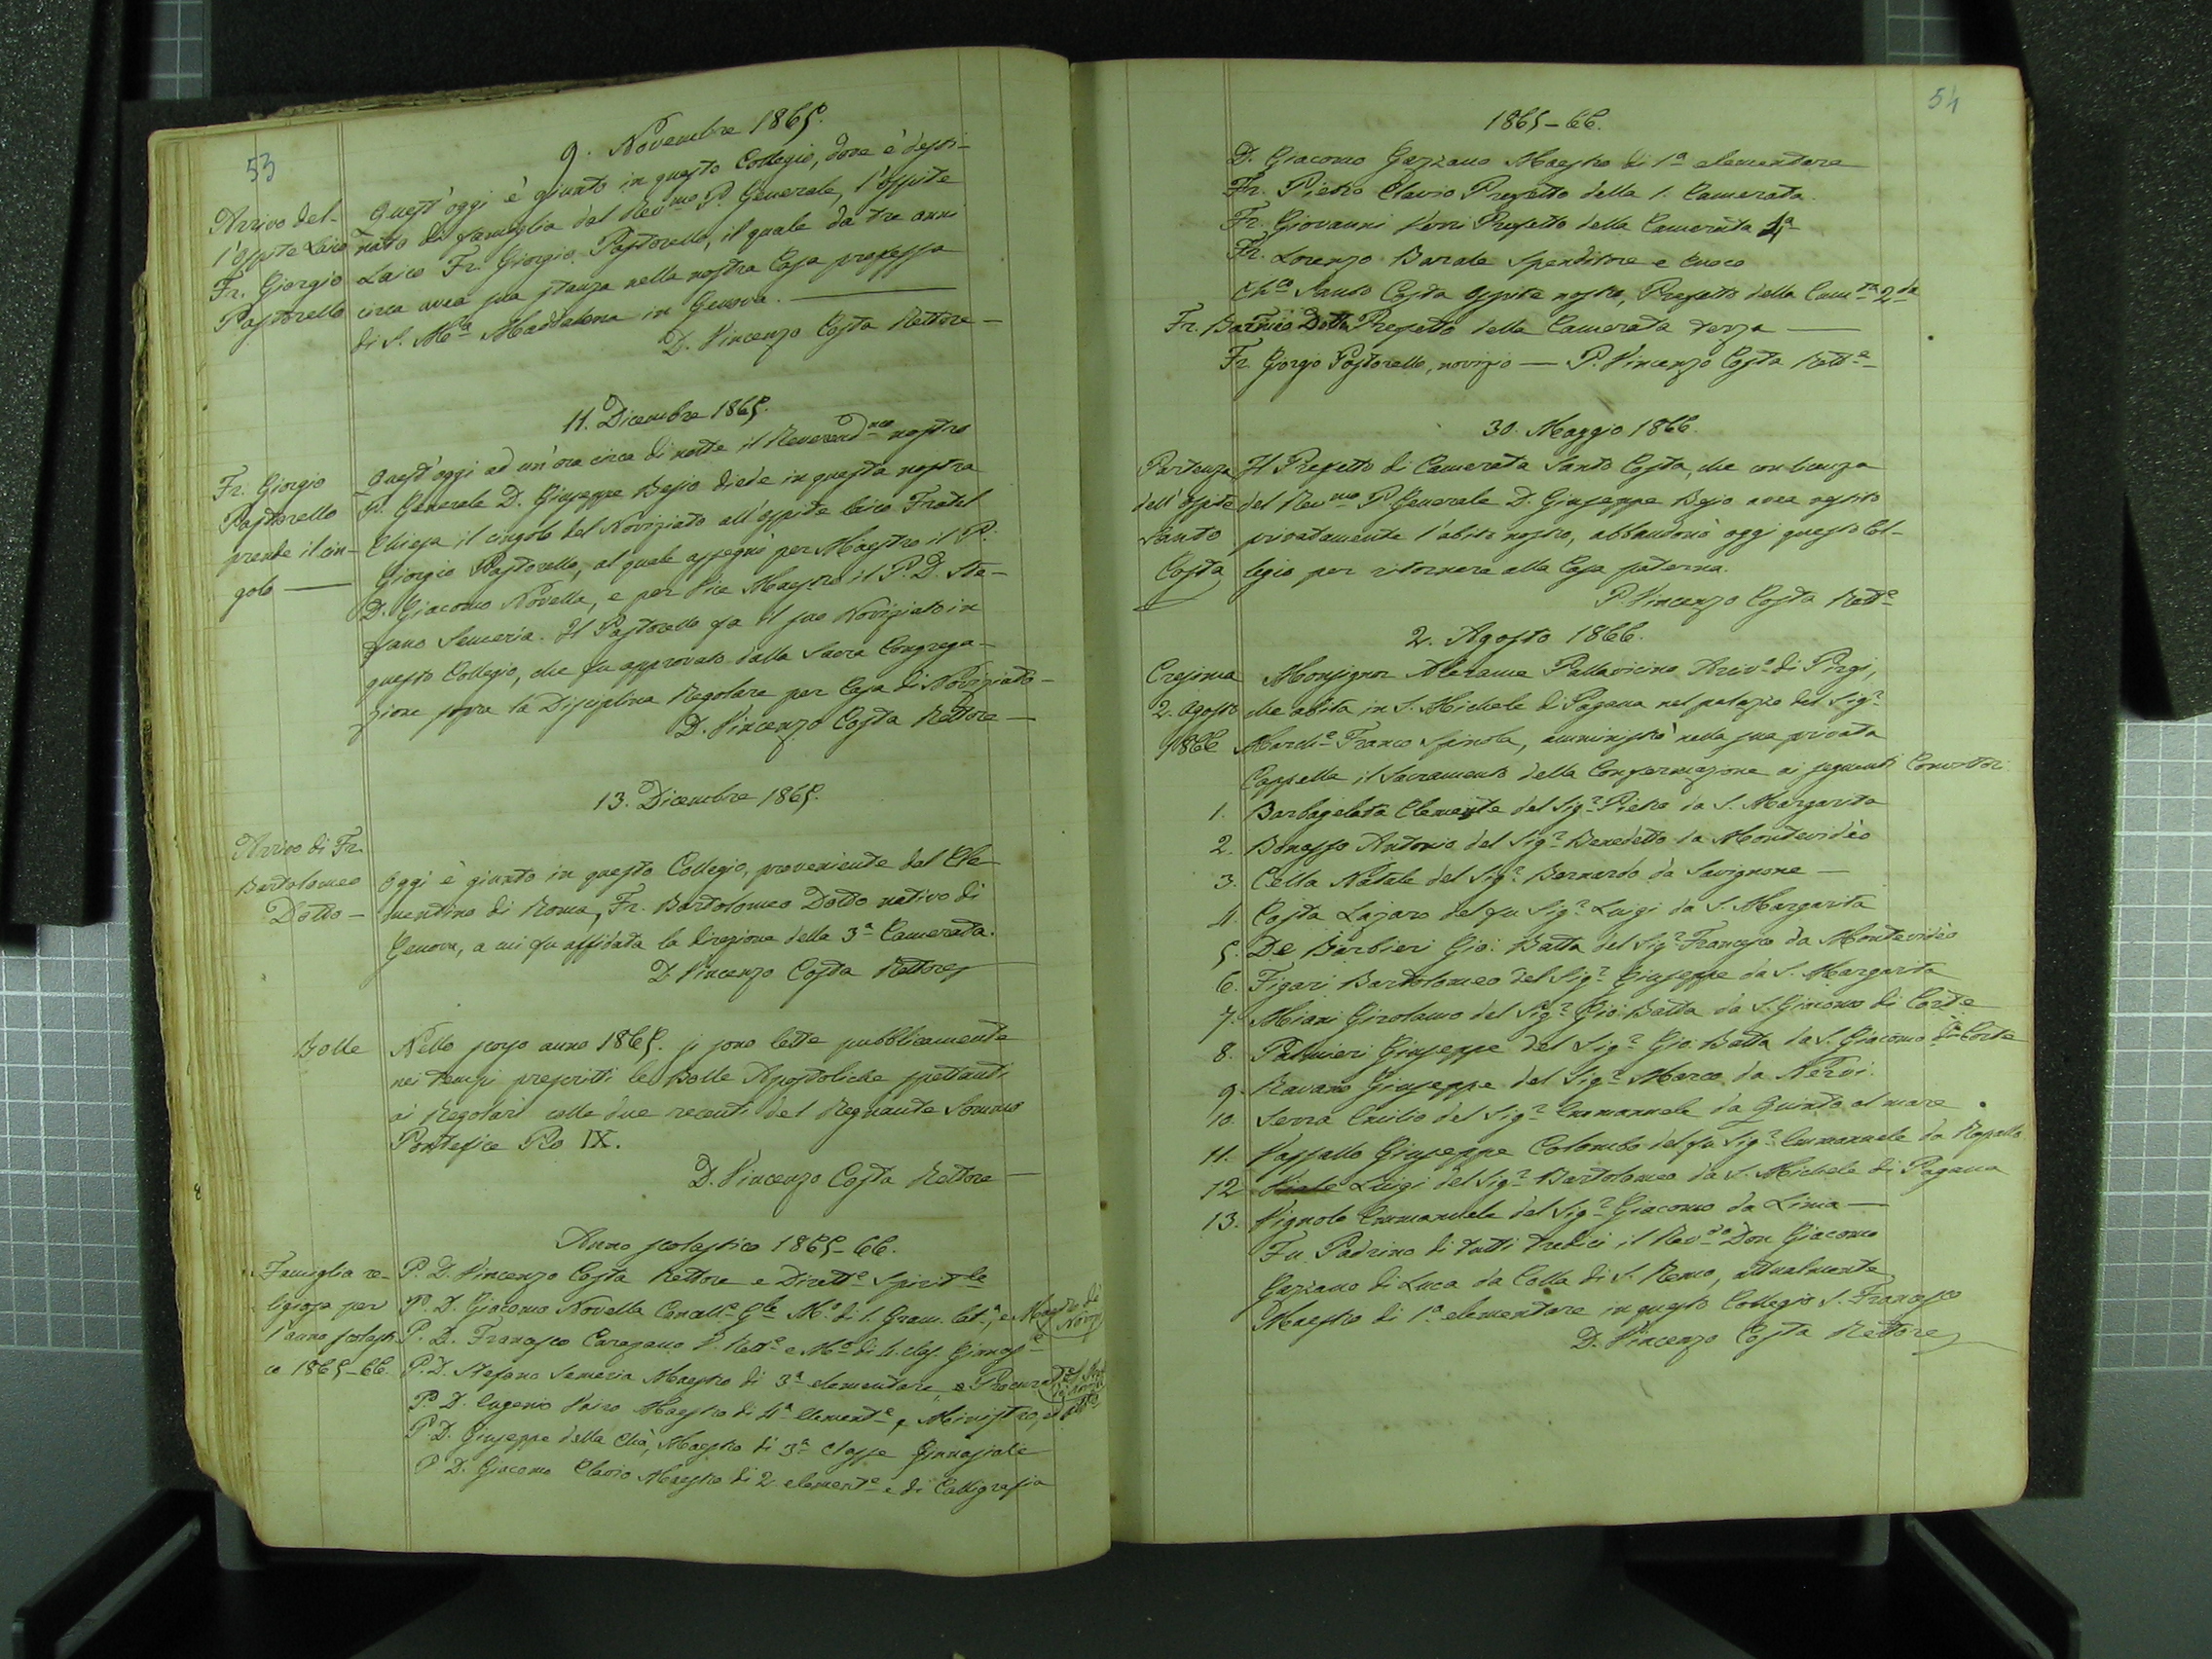 53
9. Novembre 1865.
Arrivo del-
l'Ospite Laico
Fr. Giorgio
Pastorello
Quest'oggi è giunto in questo Collegio, dove è desti-
nato di famiglia dal Rev.mo P. Generale, l'Ospite
Laico Fr. Giorgio Pastorello, il quale da tre anni
circa avea sua stanza nella nostra Casa professa
di S. M.a Maddalena in Genova. —
D. Vincenzo Costa Rettore —
11. Dicembre 1865.
Fr. Giorgio
Pastorello
prende il cin-
golo —
Quest'oggi ad un'ora circa di notte il Reverend.mo nostro
P. Generale D. Giuseppe Besio diede in questa nostra
Chiesa il cingolo del Noviziato all'ospite laico Fratel
Giorgio Pastorello, al quale assegnò per Maestro il P.
D. Giacomo Novella, e per Vice Maestro il P. D. Ste-
fano Semeria. Il Pastorello fa il suo Noviziato in
questo Collegio, che fu approvato dalla Sacra Congrega-
zione sopra la Disciplina Regolare per Casa di Noviziato —
D. Vincenzo Costa Rettore —
13. Dicembre 1865.
Arrivo di Fr.
Bartolomeo
Dotto —
Oggi è giunto in questo Collegio, proveniente dal Cle-
mentino di Roma, Fr. Bartolomeo Dotto nativo di
Genova, a cui fu affidata la direzione della 3a Camerata.
D. Vincenzo Costa Rettore
Bolle
Nello scorso anno 1865. si sono lette pubblicamente
nei tempi prescritti le Bolle Apostoliche spettanti
ai Regolari colle due recenti del Regnante Sommo
Pontefice Pio IX.
D. Vincenzo Costa Rettore —
Anno scolastico 1865-66.
Famiglia re-
ligiosa per
l'anno scolasti-
co 1865-66
P. D. Vincenzo Costa Rettore e Dirett.e Spirit.le
P. D. Giacomo Novella M.o di 1. Gram. Lat.a, e Maestro de Noviz
P. D. Francesco V. Rett.e e M.o di clas. Ginnas.e
P. D. Stefano Semeria Maestro di 3a elementare, e
P. D. Eugenio Vairo Maestro di 4a Element.e, Ministro,
P. D. Giuseppe della Chà, Maestro di 3a classe Ginnasiale
P. D. Giacomo Clavio Maestro di 2 element.e e di Calligrafia
54
1865-66.
D. Giacomo Gazzano Maestro di 1a elementare
Fr. Pietro Clavio Prefetto della 1. Camerata.
Fr. Giovanni Verri Prefetto della Camerata 4a
Fr. Lorenzo Barale Spenditore e Cuoco
Ch.co Santo Costa Ospite nostro, Prefetto della Cam.ta 2.da
Fr. Dotto Prefetto della Camerata terza —
Fr. Giorgio Pastorello, novizio — P. Vincenzo Costa Rett.e —
30. Maggio 1866.
Partenza
dell'Ospite
Santo
Costa
Il Prefetto di Camerata Santo Costa, che con licenza
del Rev.mo P. Generale D. Giuseppe Besio avea vestito
privatamente l'abito nostro, abbandonò oggi questo Col-
legio per ritornare alla Casa paterna.
P. Vincenzo Costa Rett.e
2. Agosto 1866.
Cresima
2. Agosto
1866
Monsignor Alerame Pallavicino Arciv.o di Pirgi,
che abita in S. Michele di Pagana nel palazzo del Sig.r
March.e Franco Spinola, amministrò nella sua privata
Cappella il Sacramento della Confermazione ai seguenti Convittori
1. Barbagelata Clemente del Sig.r Pietro da S. Margarita
2. Bonasso Antonio del Sig.r Benedetto da Montevidèo
3. Cella Natale del Sig.r Bernardo da Savignone —
4. Costa Lazaro del fu Sig.r Luigi da S. Margarita
5. De Barbieri Gio: Batta del Sig.r Francesco da Montevidèo
6. Figari Bartolomeo del Sig.r Giuseppe da S. Margarita
7. Miani Girolamo del Sig.r Gio: Batta da S. Giacomo di Corte
8. Palmieri Giuseppe del Sig.r Gio: Batta da S. Giacomo di Corte
9. Ravano Giuseppe del Sig.r Marco da Nervi.
10. Serra Emilio del Sig.r Emmanuele da Quinto al mare
11. Vassallo Giuseppe Colombo del fu Sig.r Emmanuele da Rapallo
12 Viale Luigi del Sig.r Bartolomeo da S. Michele di Pagana
13. Vignolo Emmanuele del Sig.r Giacomo da Lima —
Fu Padrino di tutti tredici il Rev.do Don Giacomo
Gazzano di Luca da Colla di S. Remo, attualmente
Maestro di 1.a elementare in questo Collegio S. Francesco
D. Vincenzo Costa Rettore